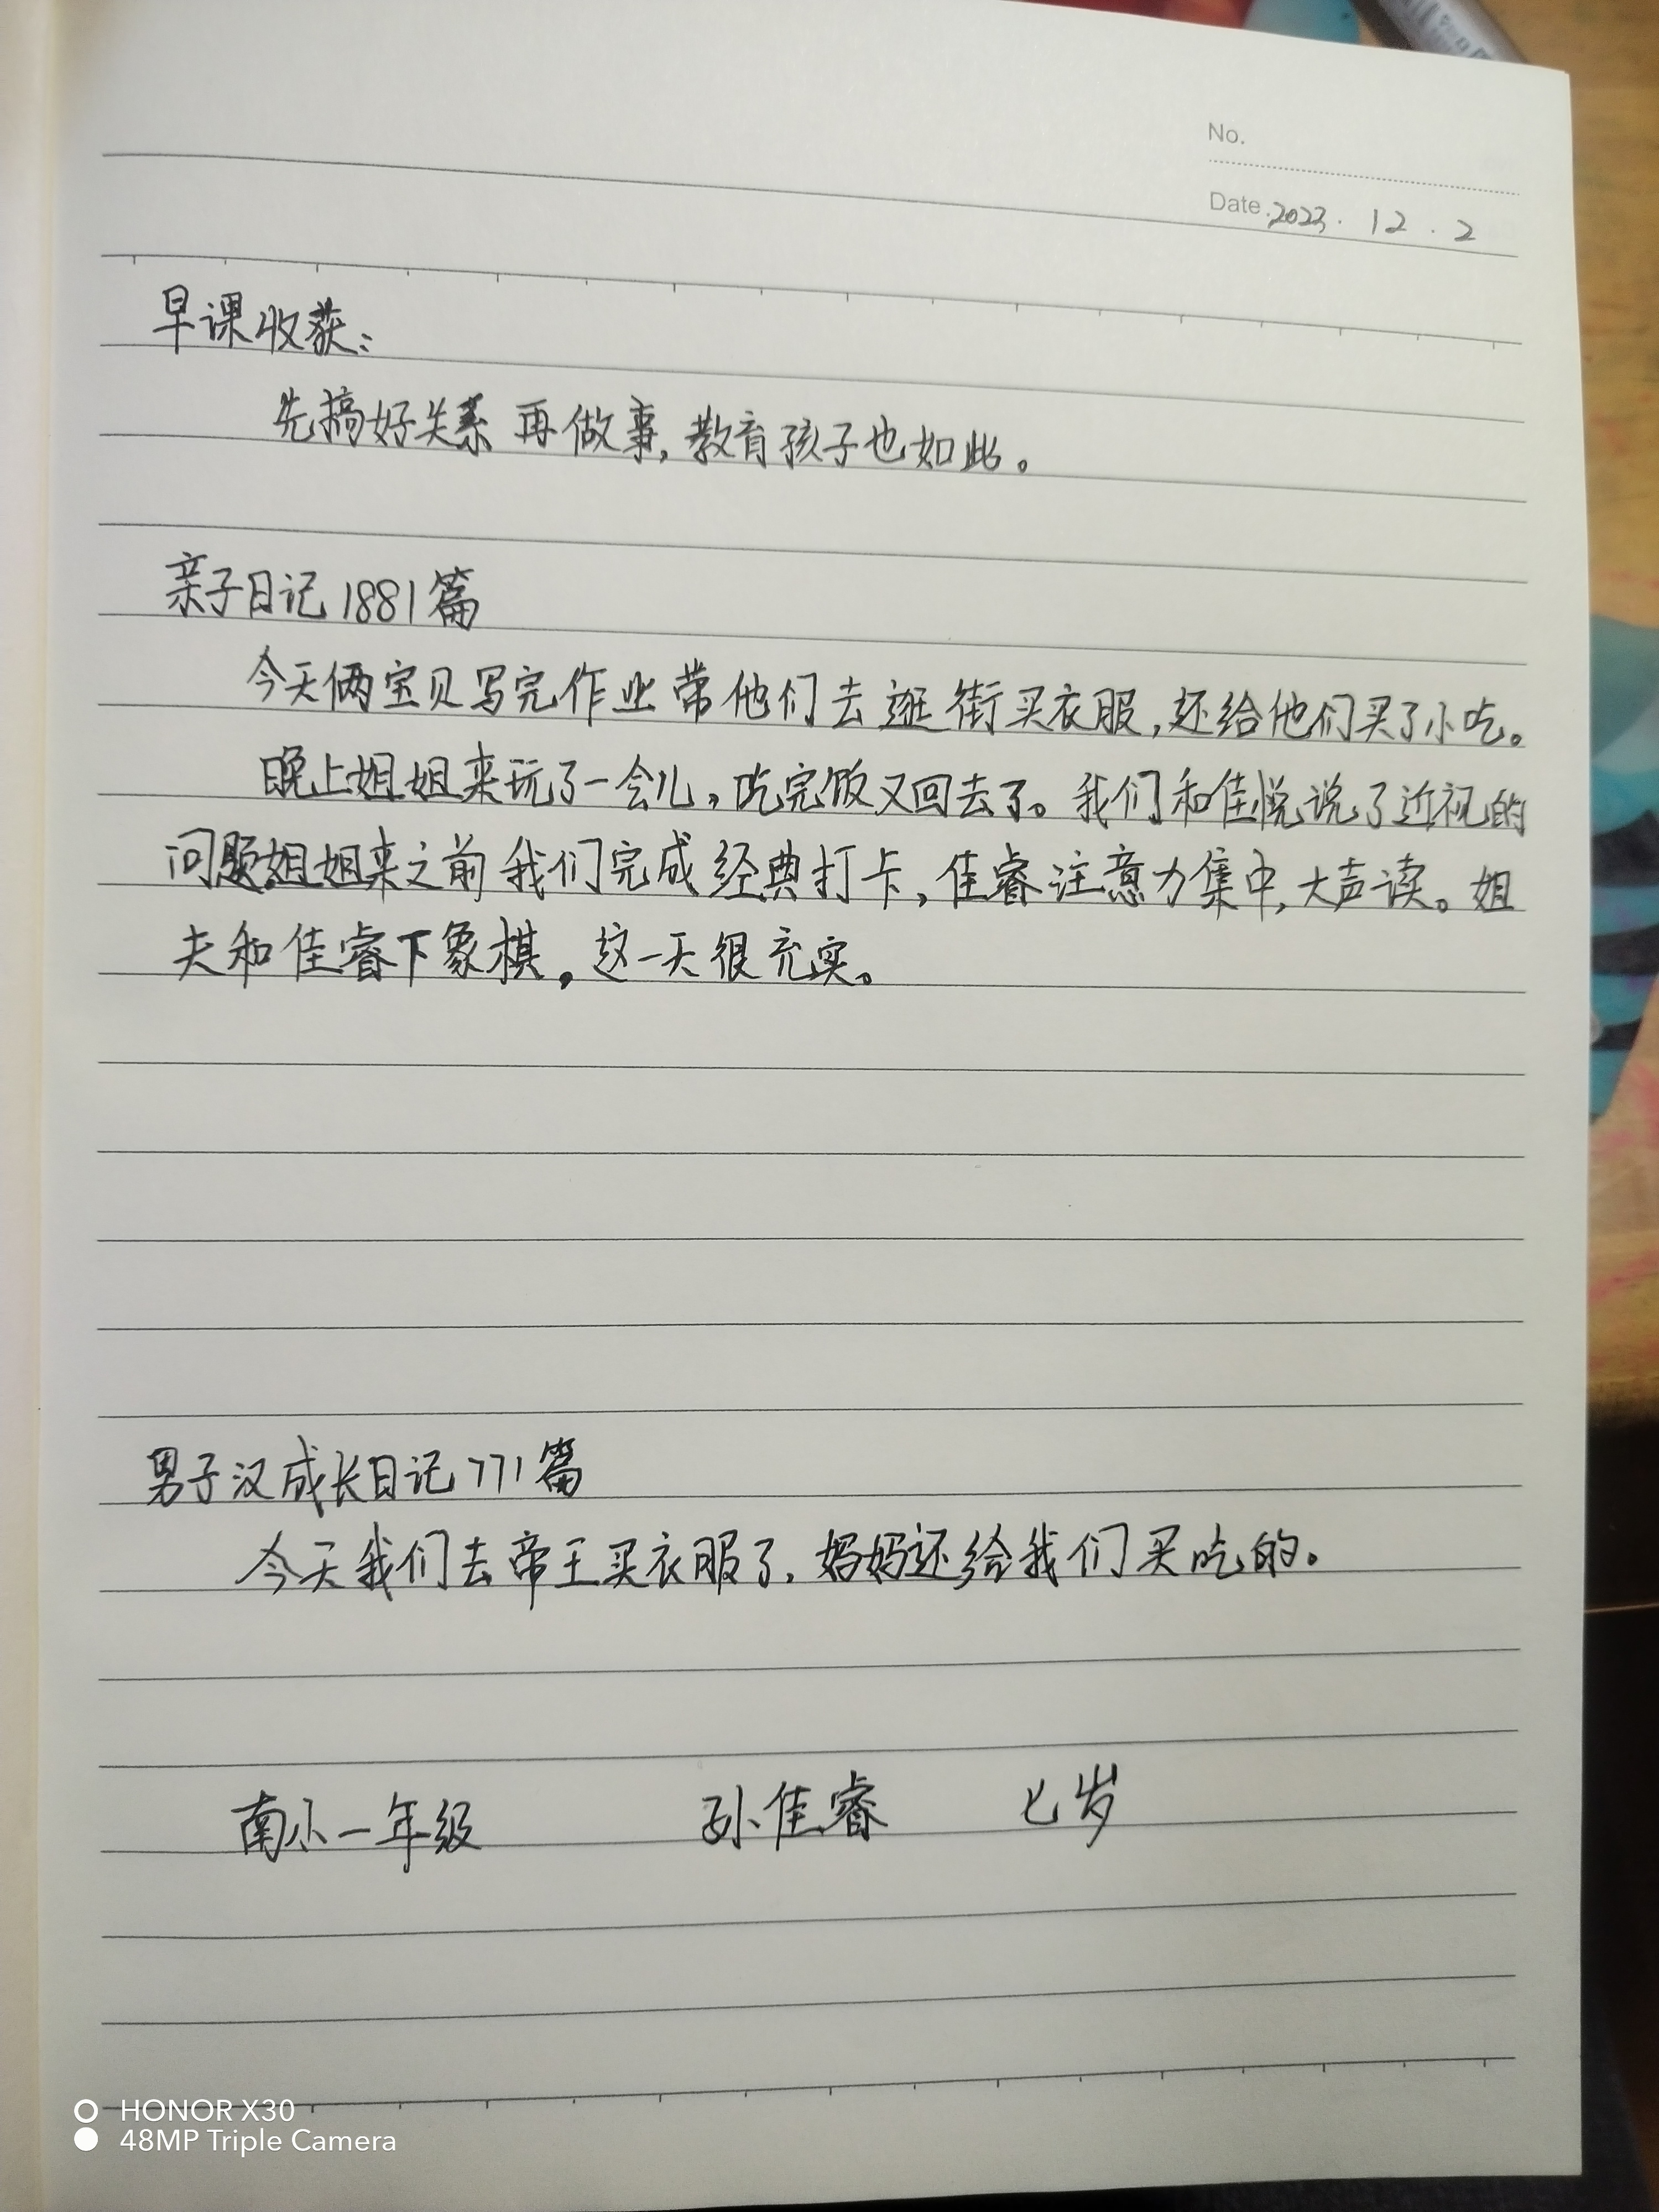 No.
Date. 2023. 12. 2
早课收获：
先搞好关系再做事，教育孩子也如此。
亲子日记1881篇
今天俩宝贝写完作业带他们去逛街买衣服，还给他们买了小吃。
晚上姐姐来玩了一会儿，吃完饭又回去了。我们和佳悦说了近视的
问题。姐姐来之前我们完成经典打卡，佳睿注意力集中，大声读。姐
夫和佳睿下象棋。这一天很充实。
男子汉成长日记771篇
今天我们去帝王买衣服了，妈妈还给我们买吃的。
南小一年级 孙佳睿 七岁
HONOR X30
48MP Triple Camera